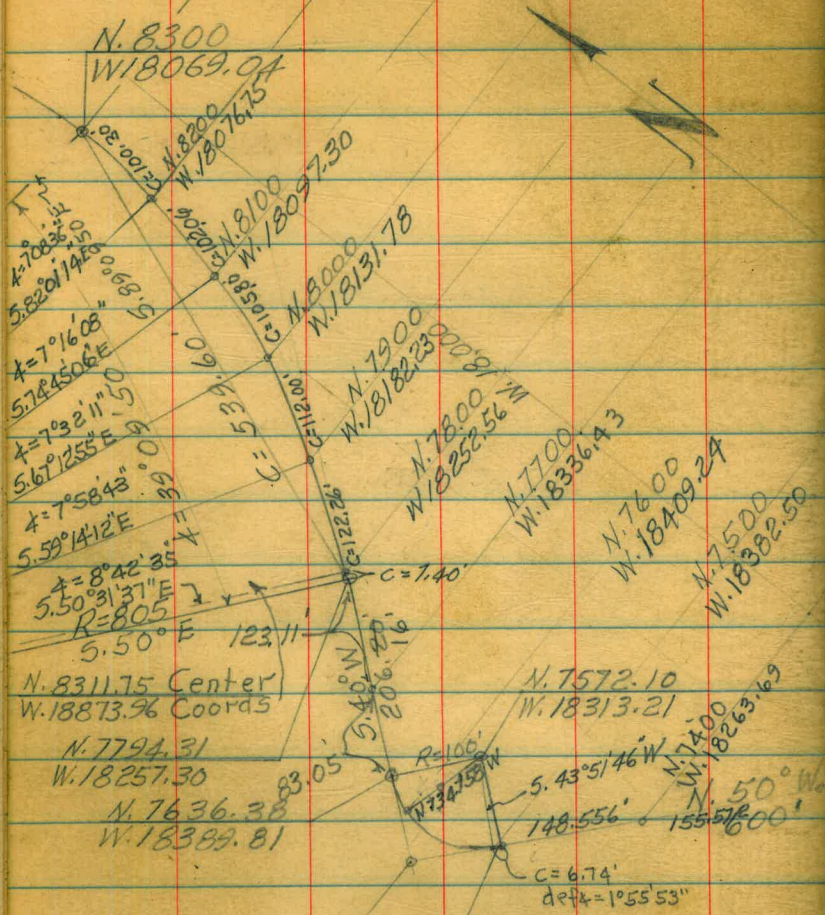 N. 8300
W18069.04
C=100.30'
N.8200
W.18076.75
C=102.06'
N.8100
W.18097.30
C=105.80
N.8000
W.18131.78
C=112.00'
N.7900
W.18182.23
W. 18,000
N.7800
W18252.56
N.7700
W.18336.43
N.7600
W.18409.24
N.7500
W.18382.50
N.7400
W.18263.69
5.82°01'14"E
∡=7°16'08"
5.74°45'06"E
∡=7°32'11"
5.67°12'55"E
∡=7°58'43"
5.59°14'12"E
∡=8°42'35"
5.50°31'37"E
R=805
5.50°E
∡=39°09'50
C=539.60'
C=122.26'
C=7.40'
123.11'
N. 8311.75 Center
W.18873.96 Coords
N. 7794.31
W.18257.30
N. 7636.38
W.18389.81
83.05'
S.40°W
206.
16'
R=100'
N. 7572.10
W.18313.21
S. 43°51'46"W
148.556'
N. 50° W.
600'
C=6.74'
def∡=1°55'53"